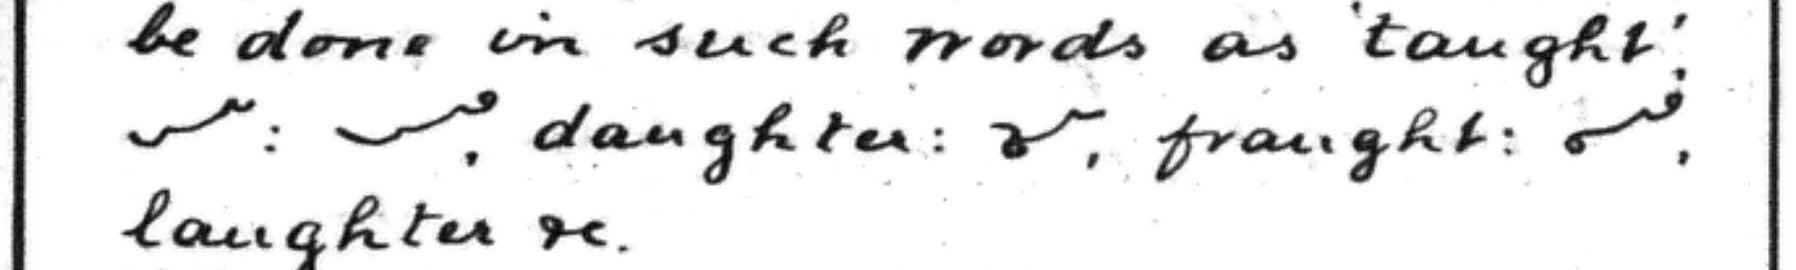 be done in such words as 'taught',
: , daughter: , fraught: ,
laughter &c.